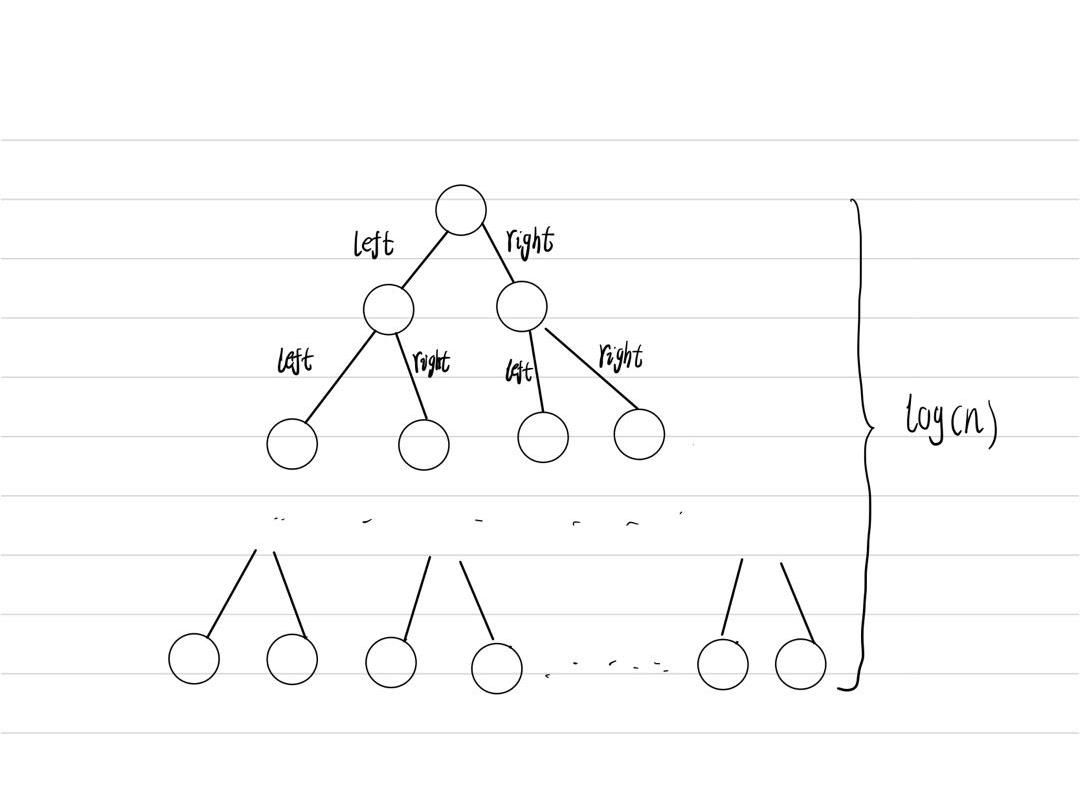 left right
left right left right
log(n)